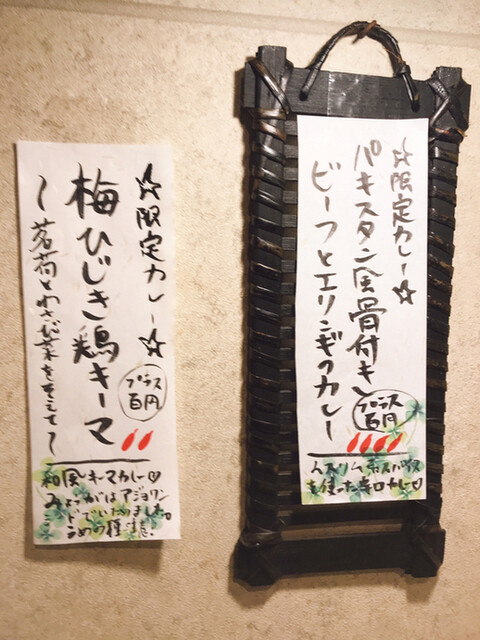 ☆限定カレー☆
パキスタン風骨付き
ビーフとエリンギのカレー
プラス
百円
ムスリム系スパイス
を使った辛口カレー♡
☆限定カレー☆
梅ひじき鶏キーマ
〜茗荷とわさび菜をそえて〜
プラス
百円
和風キーマカレー♡
みょうがはアジョワン